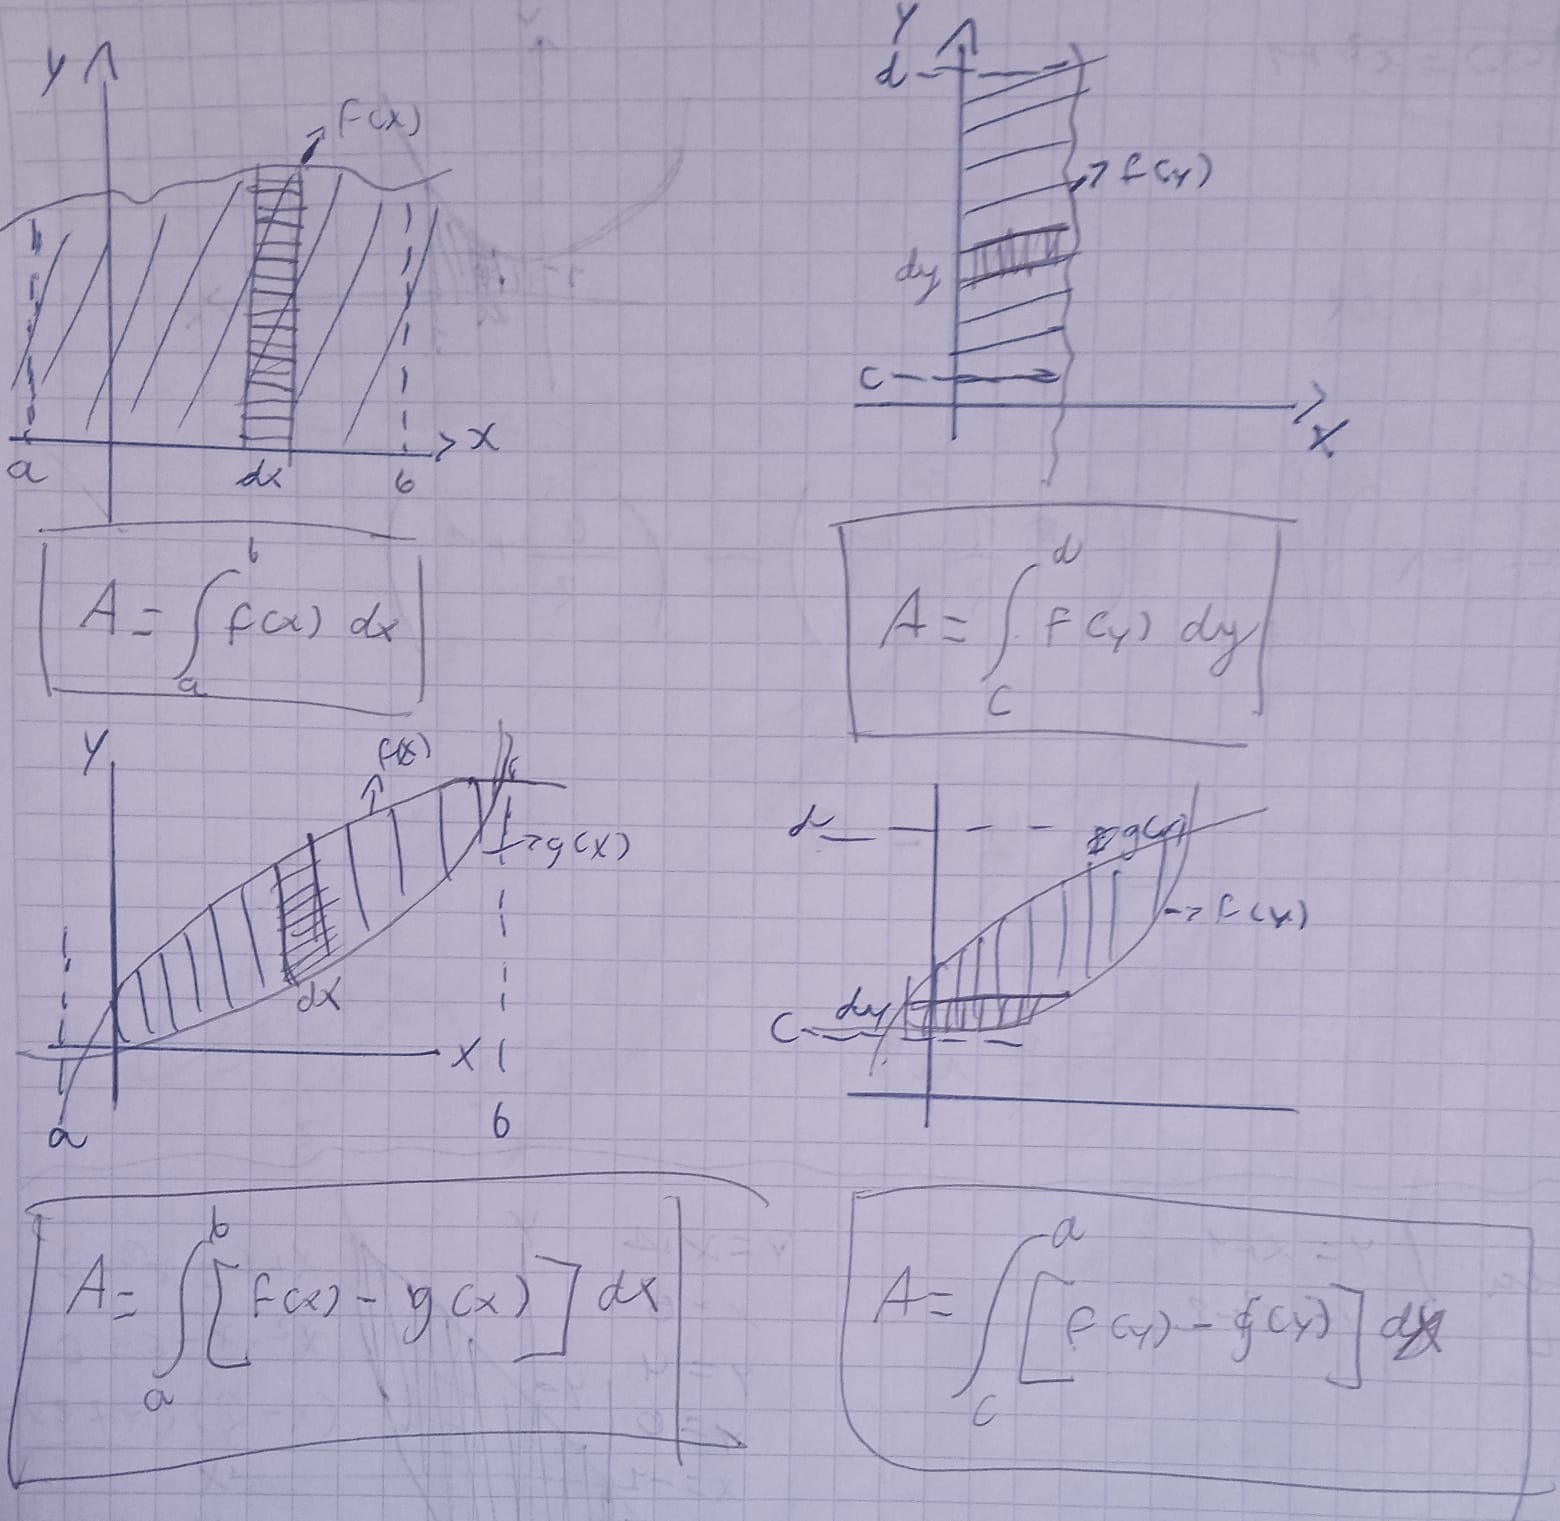 y
f(x)
x
a
dx
b
A = ∫_a^b f(x) dx
y
d
f(y)
dy
c
x
A = ∫_c^d f(y) dy
y
f(x)
g(x)
dx
x
a
b
A = ∫_a^b [f(x) - g(x)] dx
d
g(y)
f(y)
dy
c
A = ∫_c^d [f(y) - g(y)] dy